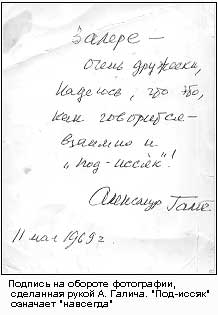 Валере —
очень дружески,
надеюсь, что это,
как говорится —
взаимно и
„под-иссяк"!
Александр Галич
11 мая 1969 г.
Подпись на обороте фотографии,
сделанная рукой А. Галича. "Под-иссяк"
означает "навсегда"